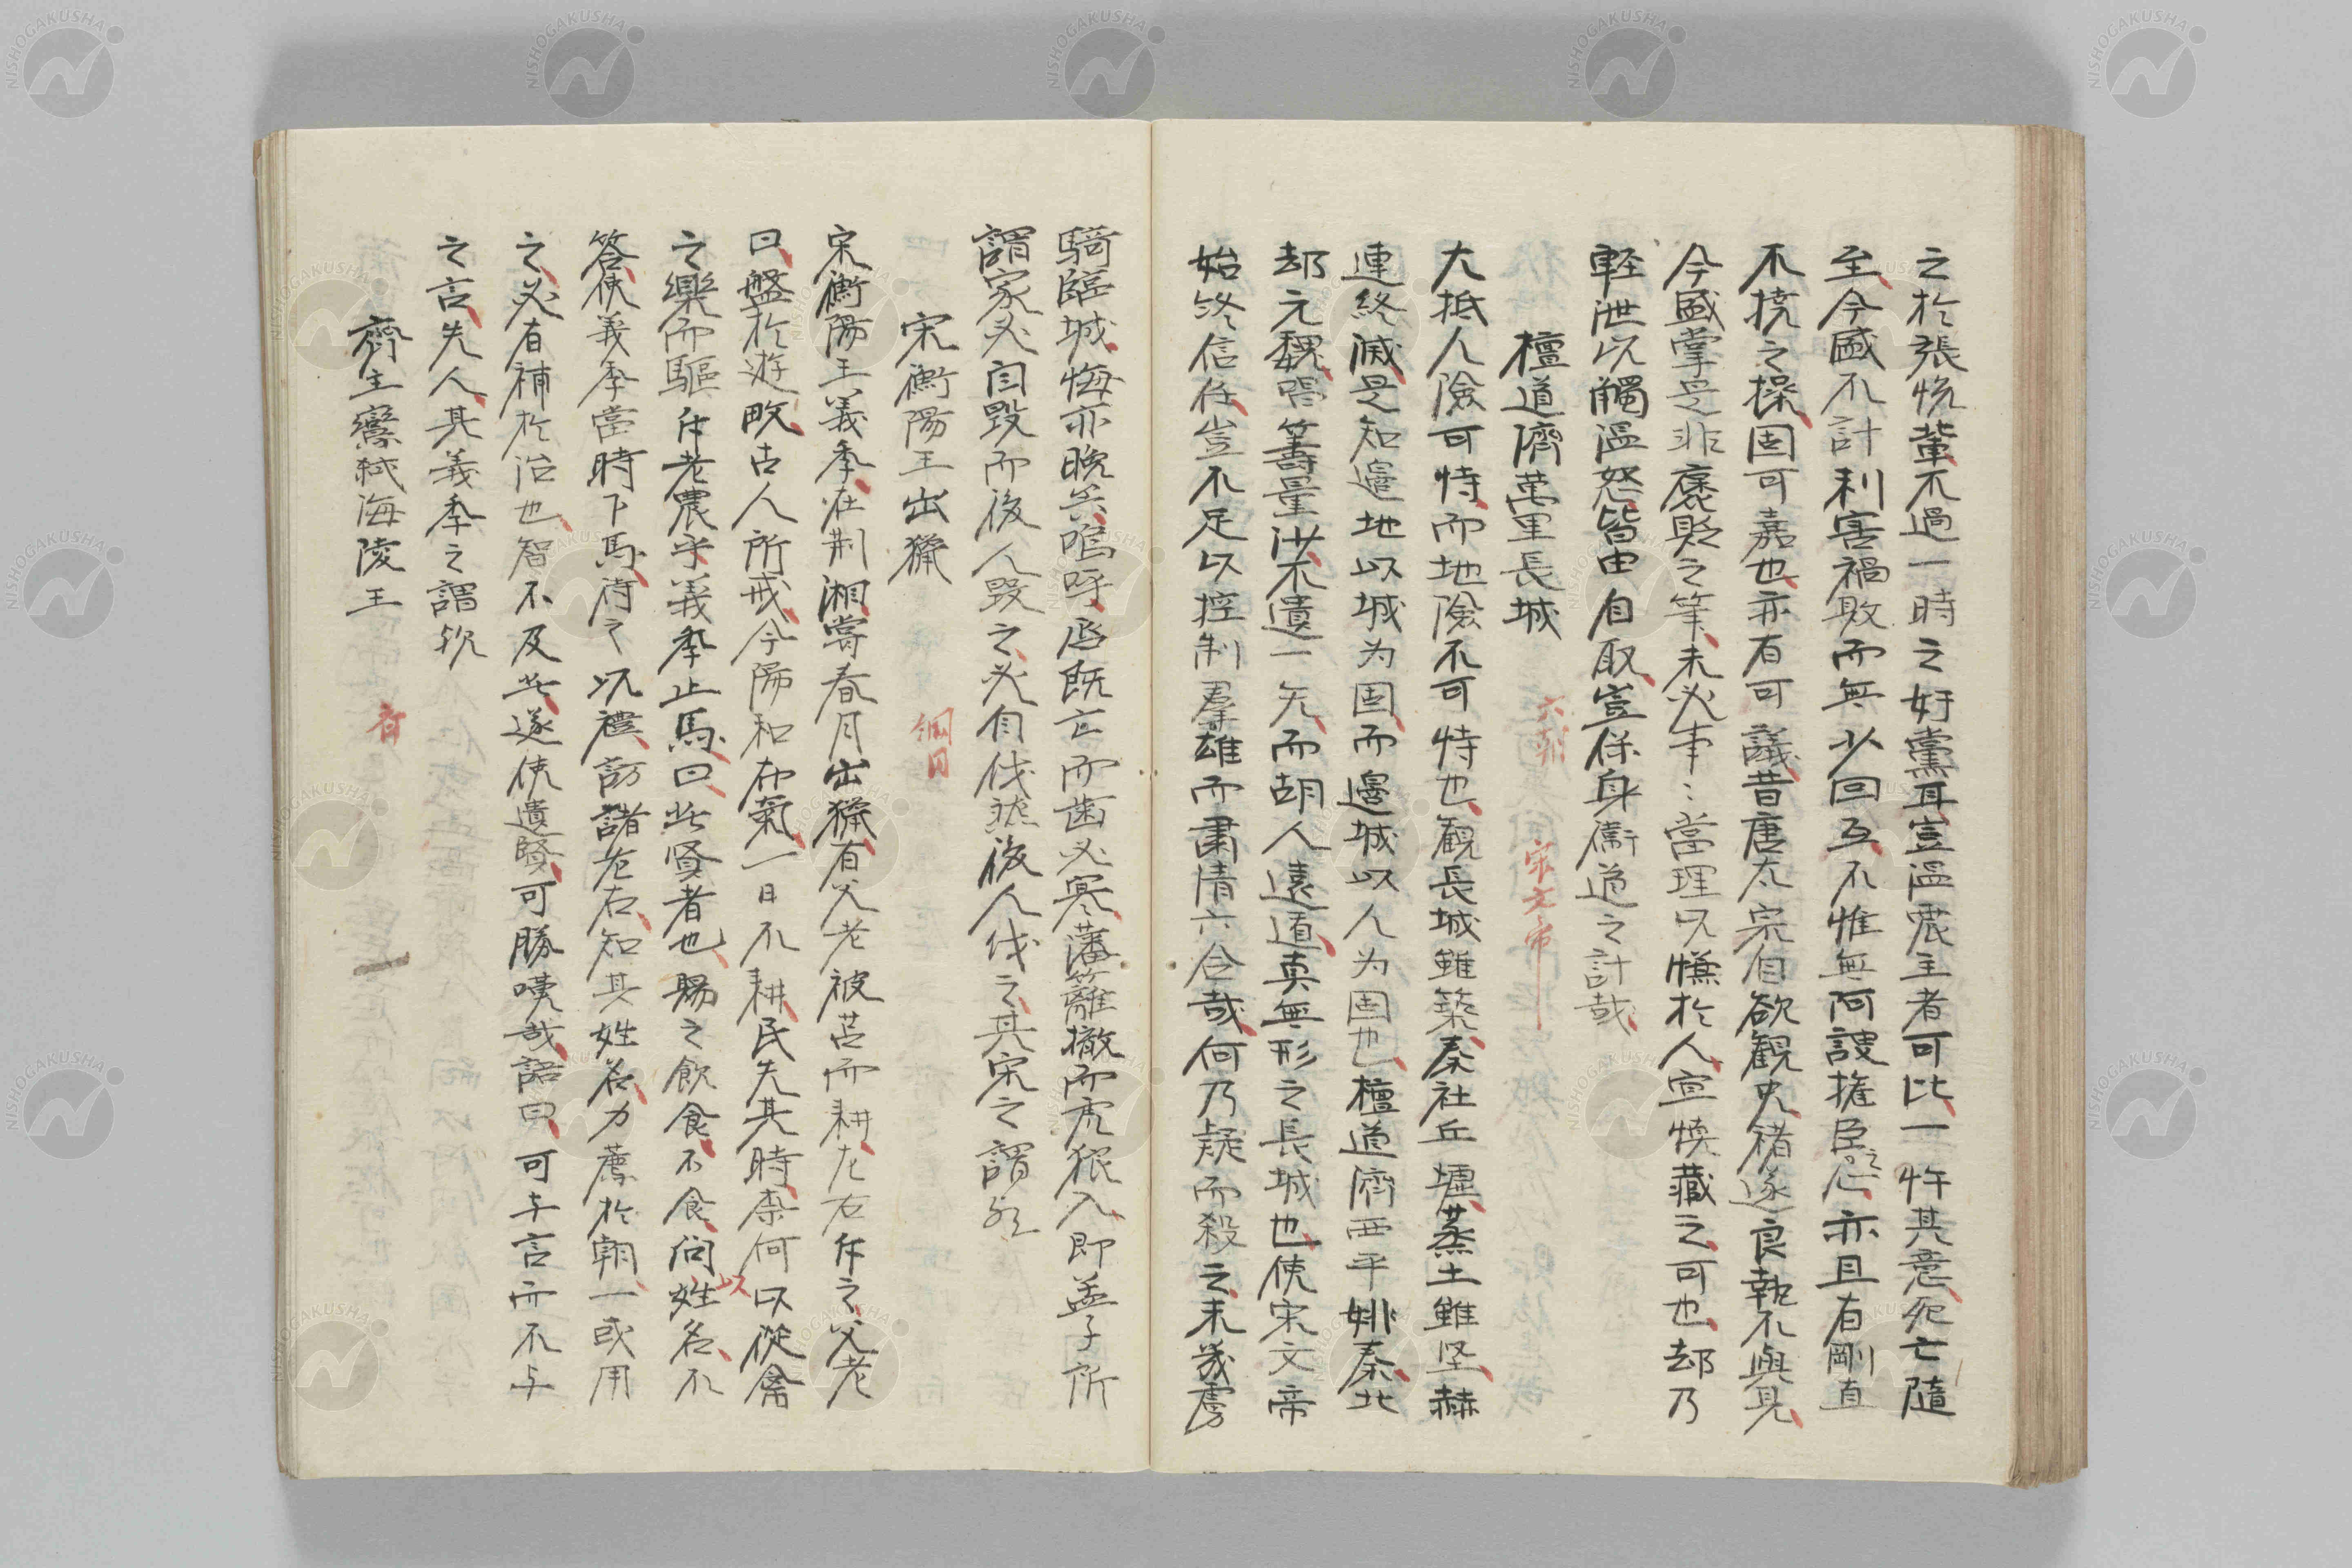 之於張悦輩不過一時之奸黨耳豈温震主者可比一忤其意死亡隨
至今盛不計利害禍敗而無少回互不惟無阿諛權臣之心亦且有剛直
不撓之操固可嘉也亦有可議昔唐太宗自欲觀史褚遂良執不與見
今盛掌是非褒貶之筆未必事〻當理以慊於人宜慎藏之可也却乃
軽泄以觸温怒皆由自取豈保身衞道之計哉
檀道濟萬里長城 六朝 宋文帝
大抵人險可恃而地險不可恃也観長城雖築秦社丘墟蒸土雖堅赫
連終滅是知邉地以城为固而邊城以人为固也檀道濟西平姚秦北
却元魏唱籌量沙不遺一矢而胡人遠遁真無形之長城也使宋文帝
始終信任豈不足以控制羣雄而粛清六合哉何乃疑而殺之未幾虜
騎臨城悔亦晩矣嗚呼唇既亡而歯必寒藩籬撤而虎狼入即孟子所
謂家必自毀而後人毀之必自伐然後人伐之其宋之謂歟
宋衡陽王出獵 綱目
宋衡陽王義季在荆湘嘗春月出獵有父老被苫而耕左右斥之父老
曰盤於遊畋古人所戒今陽和布氣一日不耕民失其時柰何以以従禽
之樂而驅斥老農乎義季止馬曰此賢者也賜之飲食不食問姓名不
答使義季當時下馬待之以禮訪諸左右知其姓名力薦於朝一或用
之必有補於治也智不及此遂使遺賢可勝嘆哉語曰可与言而不与
之言失人其義季之謂欤
齊主鸞弑海陵王 斉